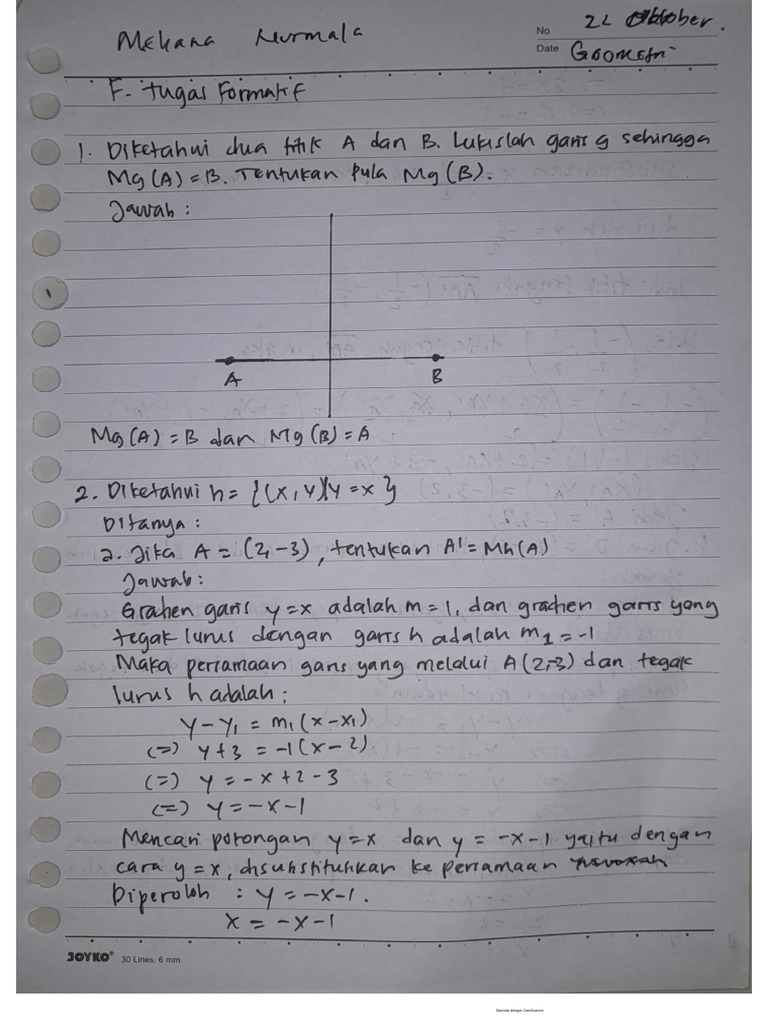 Mekana Nurmala
No 22 Oktober.
Date Geometri
F. Tugas Formatif
1. Diketahui dua titik A dan B. Lukislah garis g sehingga
Mg(A) = B. Tentukan pula Mg(B).
Jawab :
A B
Mg(A) = B dan Mg(B) = A
2. Diketahui h = {(x, y)|y = x}
Ditanya :
a. Jika A = (2, -3), tentukan A' = Mh(A)
Jawab :
Gradien garis y = x adalah m = 1, dan gradien garis yang
tegak lurus dengan garis h adalah m₁ = -1
Maka persamaan garis yang melalui A(2,-3) dan tegak
lurus h adalah :
y - y₁ = m₁(x - x₁)
(=) y + 3 = -1(x - 2)
(=) y = -x + 2 - 3
(=) y = -x - 1
Mencari potongan y = x dan y = -x - 1 yaitu dengan
cara y = x, disubstitutikan ke persamaan
Diperoleh : y = -x - 1.
x = -x - 1
JOYKO® 30 Lines, 6 mm